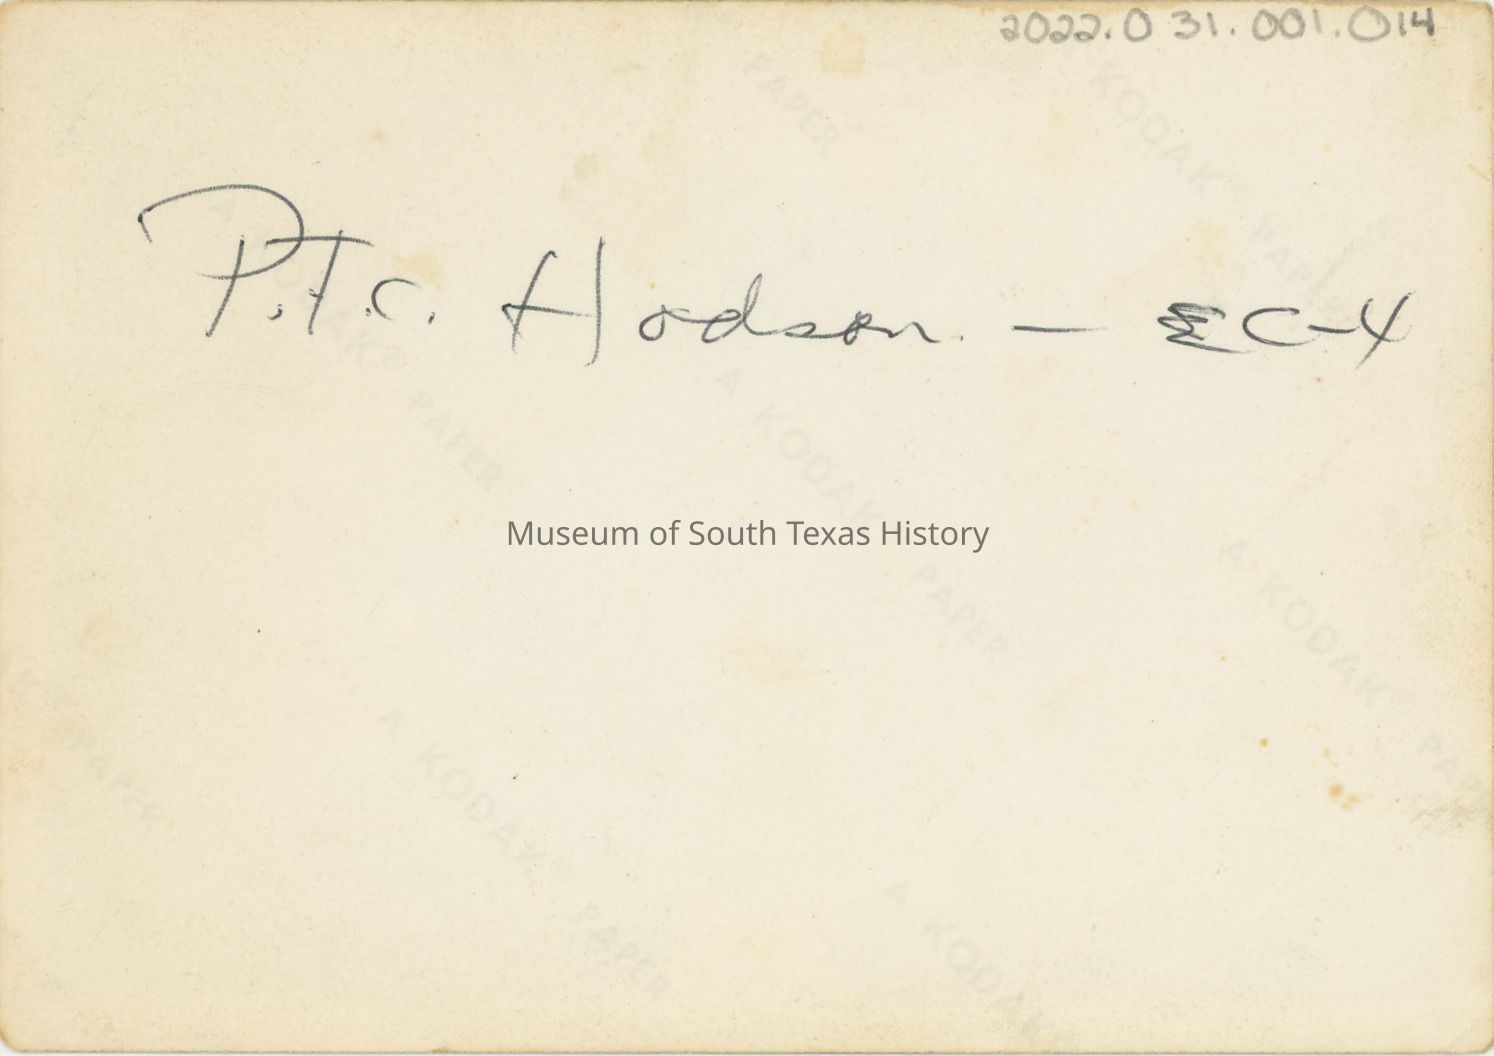 2022.031.001.014
A KODAK® PAPER
P.T.C. Hodson. — EC-4
Museum of South Texas History
A KODAK® PAPER
A KODAK® PAPER
A KODAK® PAPER
A KODAK® PAPER
A KODAK